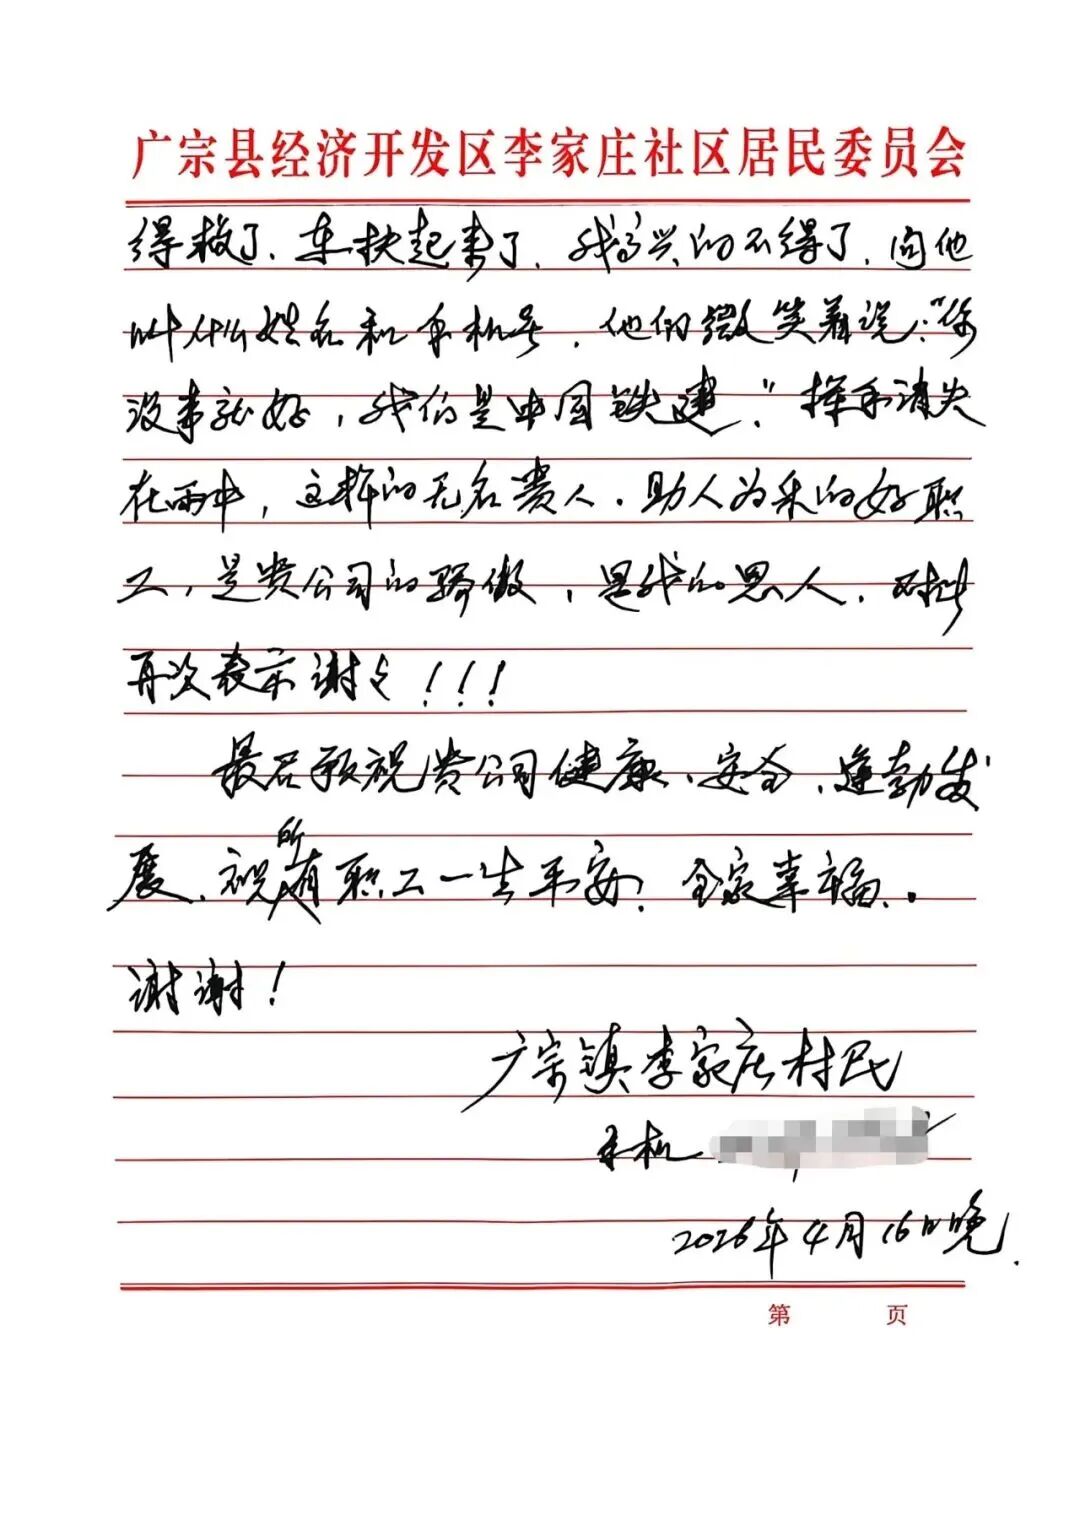 广宗县经济开发区李家庄社区居民委员会
得救了、车扶起来了、我高兴的不得了、问他
叫什么姓名和手机号，他们微笑着说:"你
没事就好，我们是中国铁建。"挥手消失
在雨中，这样的无名贵人、助人为乐的好职
工，是贵公司的骄傲，是我的恩人，对此
再次表示谢意！！！
最后预祝贵公司健康、安全、蓬勃发
展、祝所有职工一生平安！全家幸福。
谢谢！
广宗镇李家庄村民
手机
2026年4月16日晚
第 页